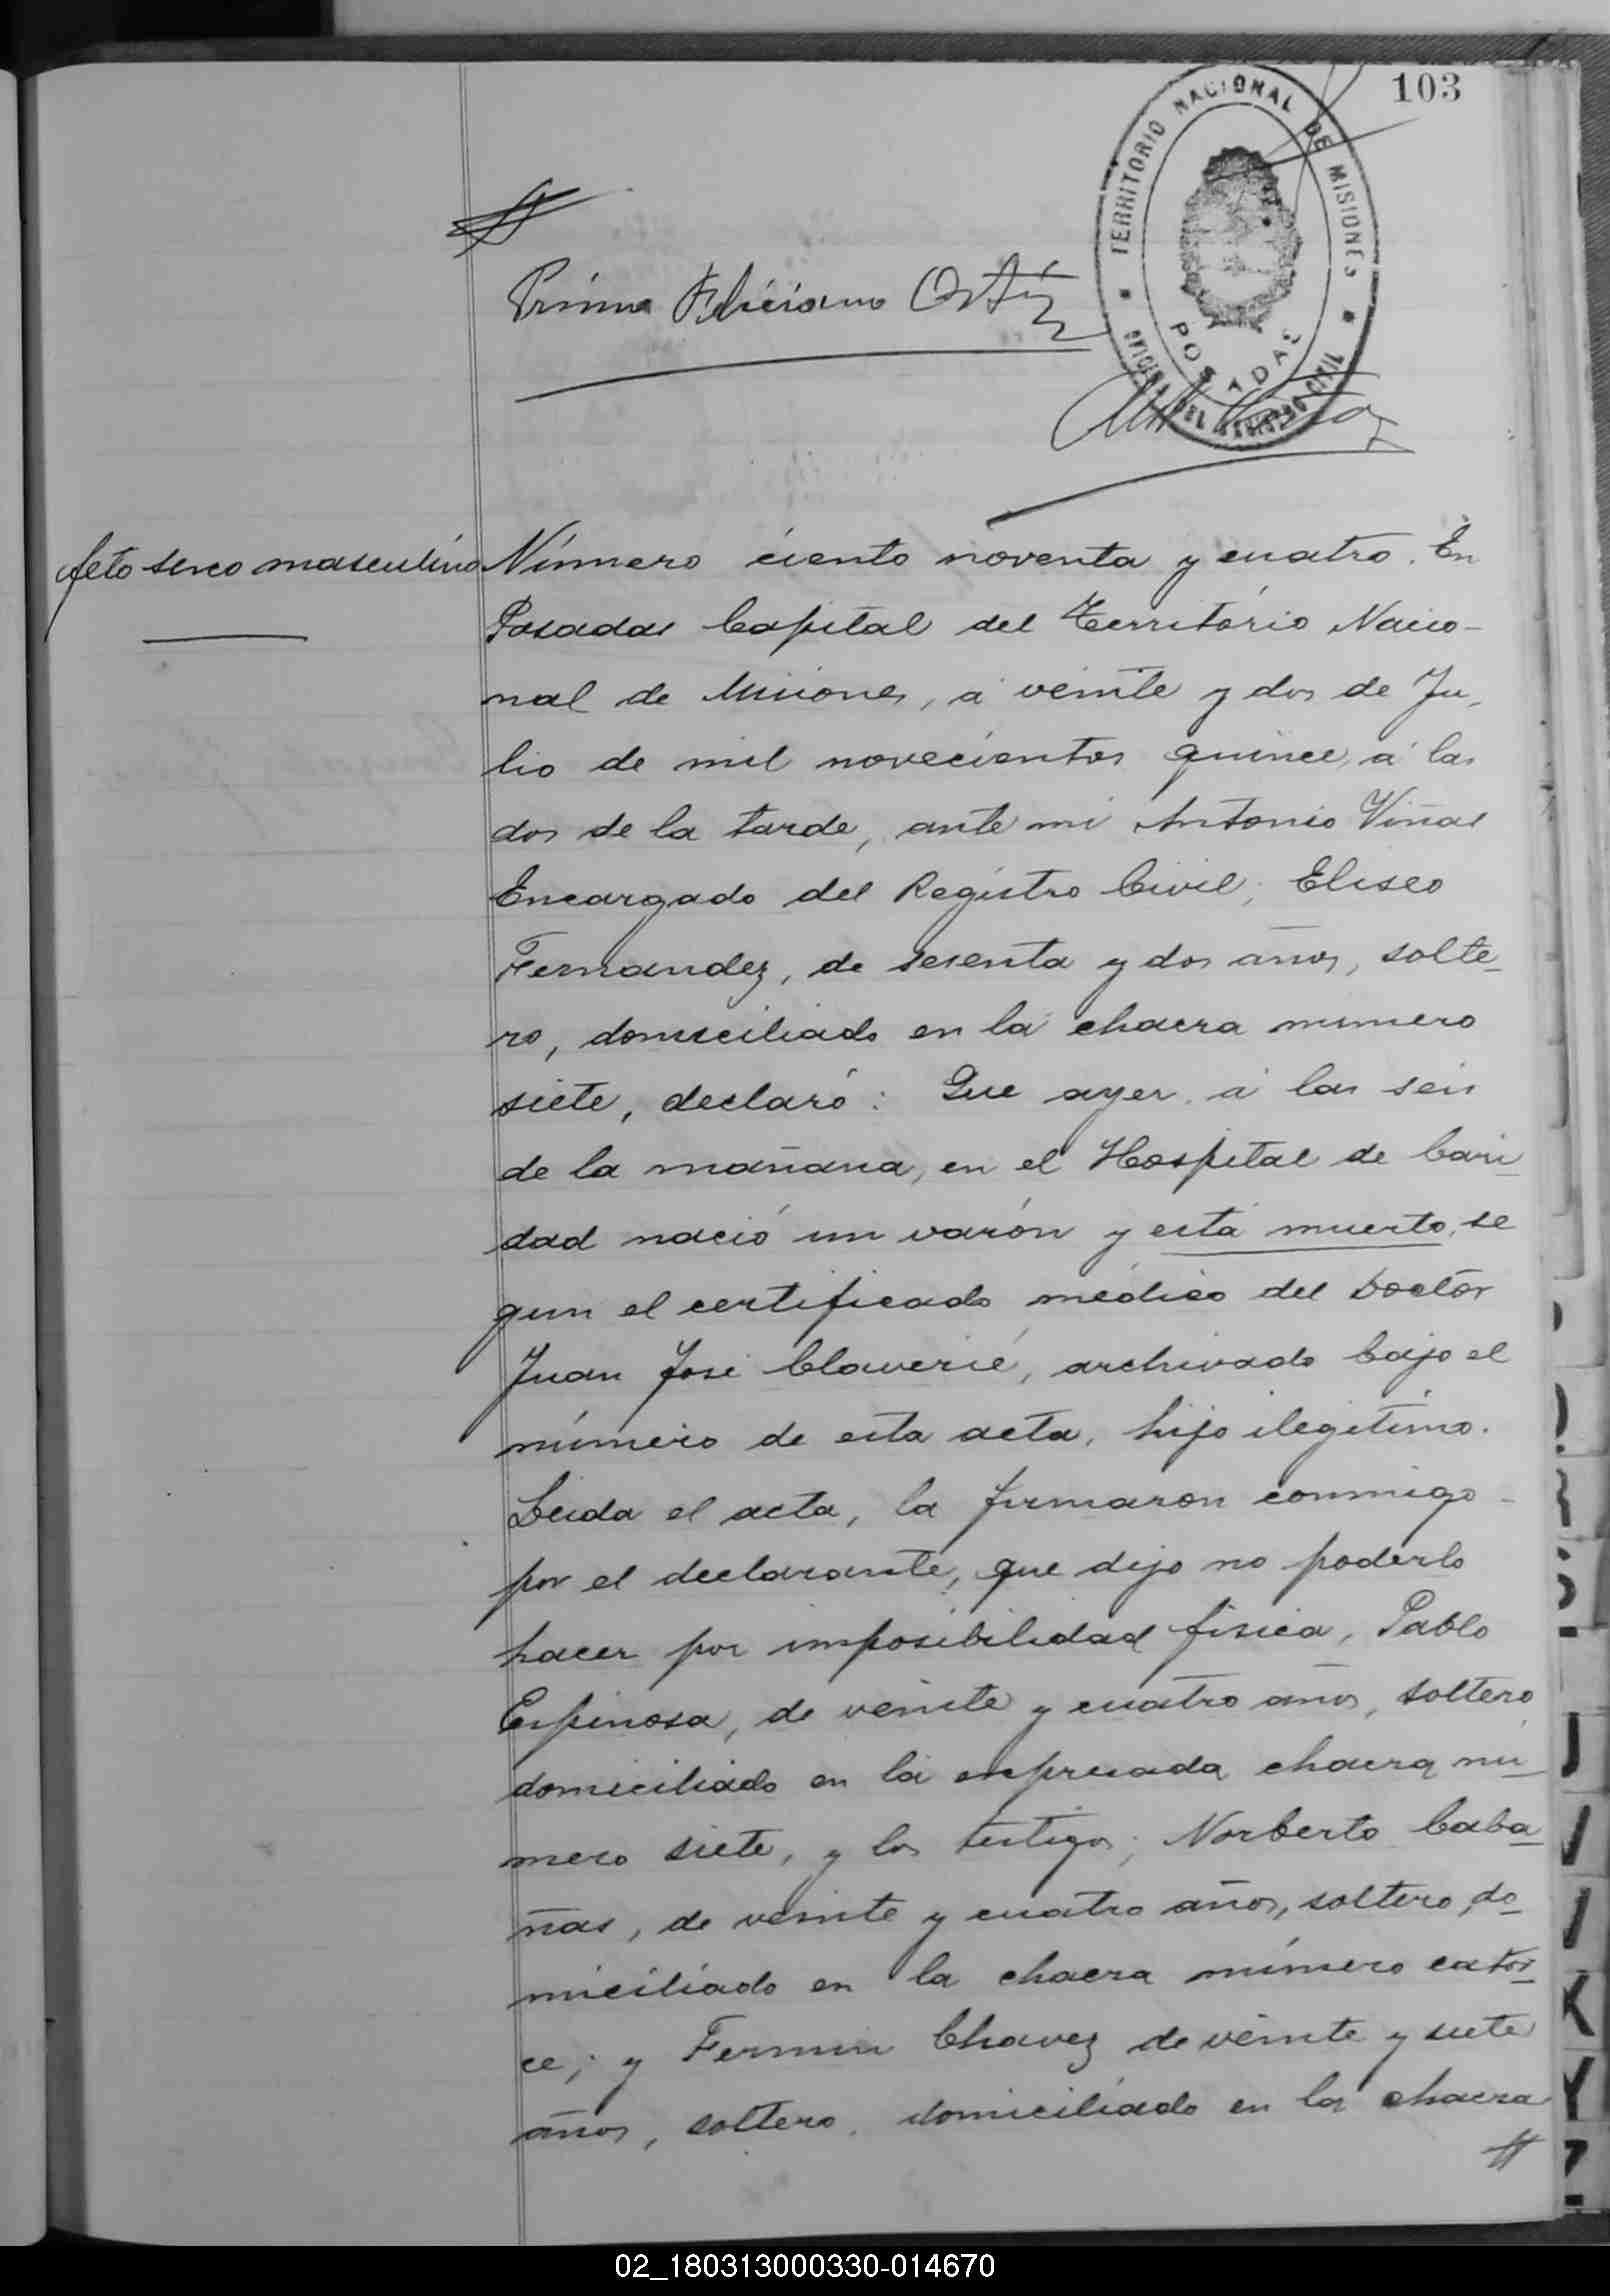 103
TERRITORIO NACIONAL DE MISIONES
POSADAS
OFICINA DEL REGISTRO CIVIL
Primo Feliciano Ortíz
feto sexo masculino
Número ciento noventa y cuatro. En
Posadas Capital del Território Nacio-
nal de Misiones, á veinte y dos de Ju-
lio de mil novecientos quince, á las
dos de la tarde, ante mi Antonio Viñas
Encargado del Registro Civil; Eliseo
Fernandez, de sesenta y dos años, solte-
ro, domiciliado en la chacra numero
siete, declaró: Que ayer, á las seis
de la mañana, en el Hospital de Cari-
dad nació un varón y está muerto, se
gun el certificado médico del Doctor
Juan José Claverié, archivado bajo el
número de esta acta, hijo ilegitimo.
Leida el acta, la firmaron conmigo
por el declarante, que dijo no poderlo
hacer por imposibilidad fisica, Pablo
Espinosa, de veinte y cuatro años, soltero
domiciliado en la expresada chacra nú-
mero siete, y los testigos; Norberto Caba-
ñas, de veinte y cuatro años, soltero, do-
miciliado en la chacra número cator-
ce; y Fermin Chavez de veinte y siete
años, soltero, domiciliado en la chacra
02_180313000330-014670